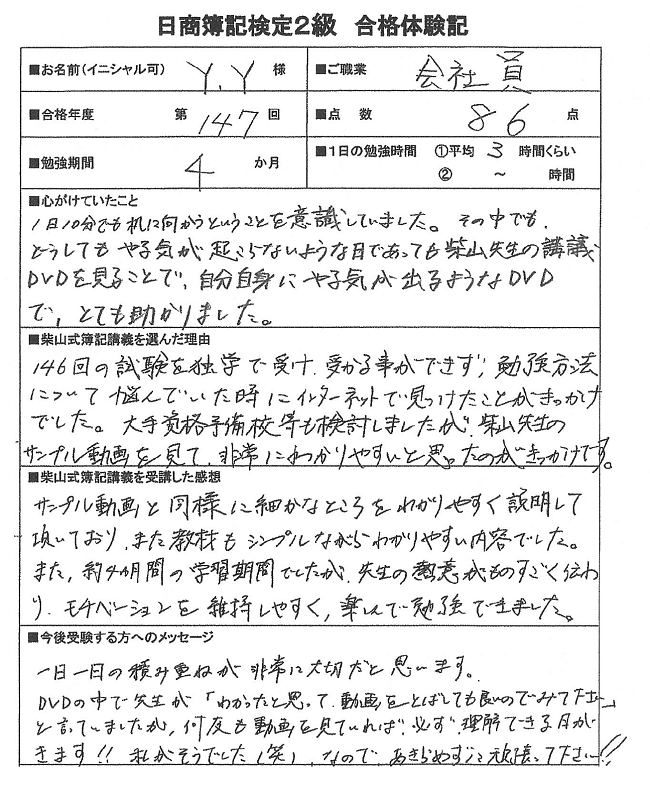 日商簿記検定2級 合格体験記
■お名前(イニシャル可) Y.Y 様 ■ご職業 会社員
■合格年度 第 147 回 ■点 数 86 点
■勉強期間 4 か月 ■1日の勉強時間 ①平均 3 時間くらい
② ～ 時間
■心がけていたこと
1日10分でも机に向かうということを意識していました。その中でも、
どうしてもやる気が起こらないような日であっても柴山先生の講義
DVDを見ることで、自分自身にやる気が出るようなDVD
で、とても助かりました。
■柴山式簿記講義を選んだ理由
146回の試験を独学で受け、受かる事ができず、勉強方法
について悩んでいた時にインターネットで見つけたことがきっかけ
でした。大手資格予備校等も検討しましたが、柴山先生の
サンプル動画を見て、非常にわかりやすいと思ったのがきっかけです。
■柴山式簿記講義を受講した感想
サンプル動画と同様に細かなところをわかりやすく説明して
頂いており、また教材もシンプルながらわかりやすい内容でした。
また、約4カ月間の学習期間でしたが、先生の熱意がものすごく伝わ
り、モチベーションを維持しやすく、楽しんで勉強できました。
■今後受験する方へのメッセージ
一日一日の積み重ねが非常に大切だと思います。
DVDの中で先生が「わかったと思って、動画をとばしても良いのでみて下さい」
と言っていましたが、何度も動画を見ていれば、必ず理解できる日が
きます!!私がそうでした(笑)、なので、あきらめずに頑張って下さい!!